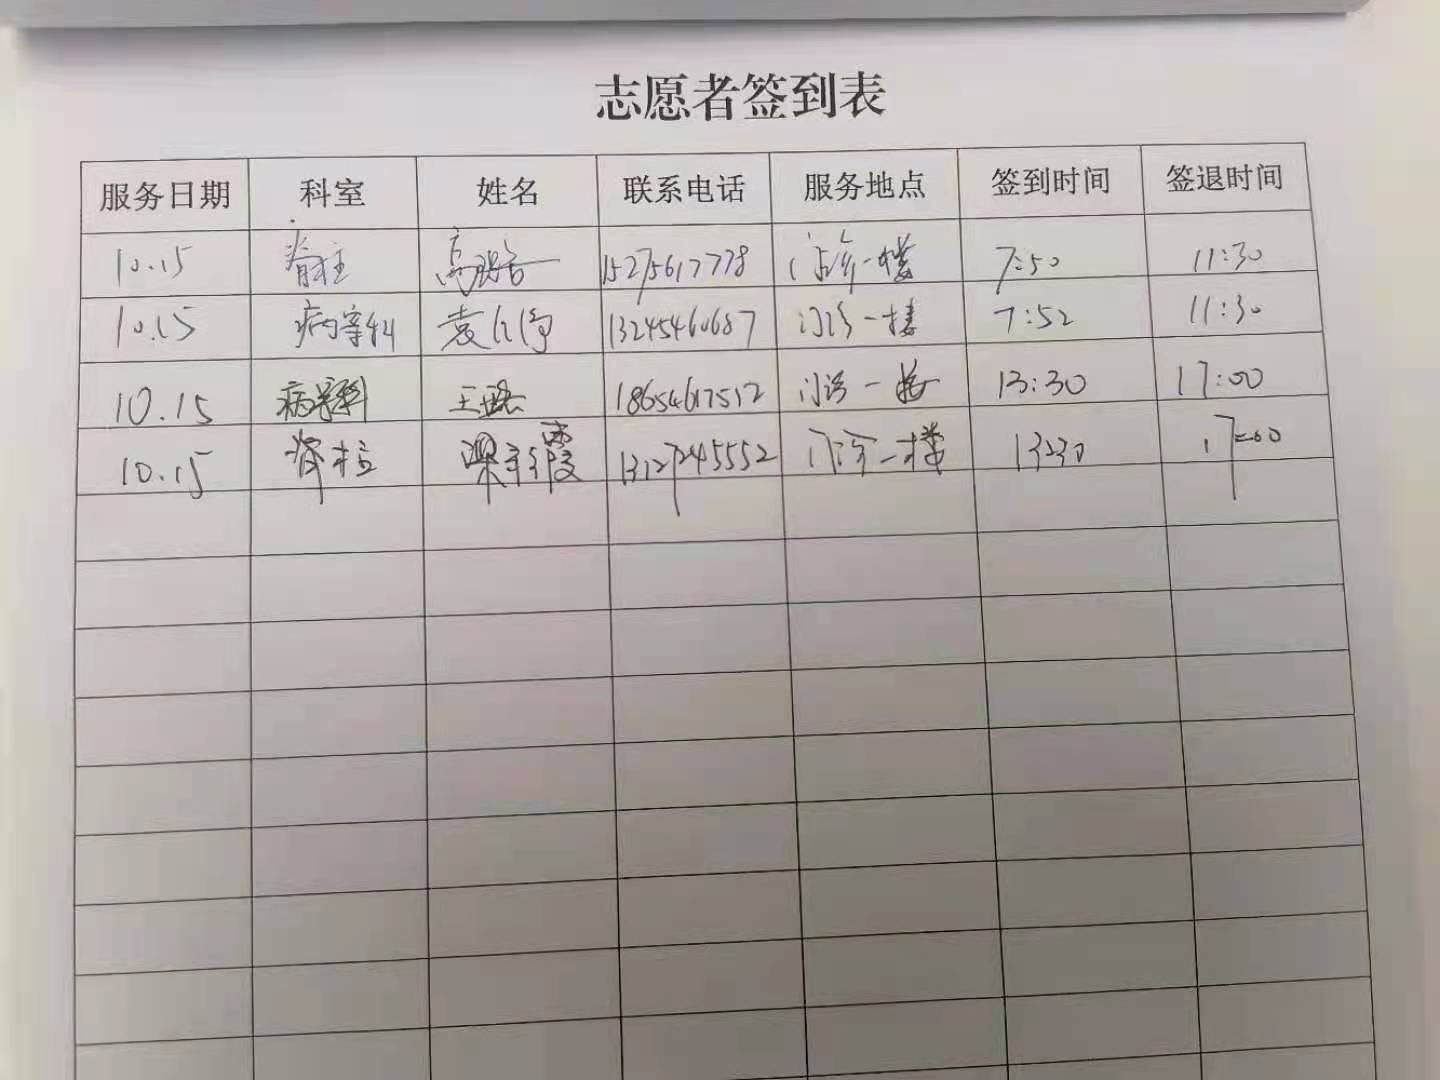 志愿者签到表
服务日期 科室 姓名 联系电话 服务地点 签到时间 签退时间
10.15 脊柱 高 15275617778 门诊一楼 7:50 11:30
10.15 病案科 袁 13245460687 门诊一楼 7:52 11:30
10.15 病案科 王 18654617512 门诊一楼 13:30 17:00
10.15 脊柱 梁 霞 13127245552 门诊一楼 13:30 17:00